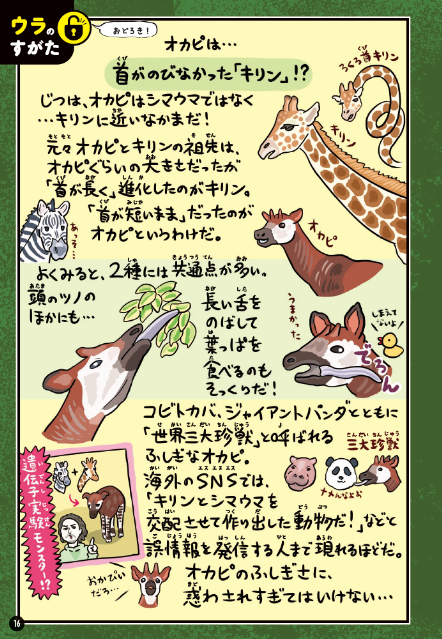 ウラの
すがた
おどろき！
オカピは…
首がのびなかった「キリン」!?
ろくろ首キリン
キリン
じつは、オカピはシマウマではなく
…キリンに近いなかまだ！
元々オカピとキリンの祖先は、
オカピぐらいの大きさだったが
「首が長く」進化したのがキリン。
「首が短いまま」だったのが
オカピというわけだ。
あっそ…
オカピ
よくみると、2種には共通点が多い。
頭のツノの
ほかにも…
長い舌を
のばして
葉っぱを
食べるのも
そっくりだ！
うまかった
しまえて
ないよ！
でろん
コビトカバ、ジャイアントパンダとともに
「世界三大珍獣」と呼ばれる
ふしぎなオカピ。
三大珍獣
なめんなよお
海外のSNSでは、
「キリンとシマウマを
交配させて作り出した動物だ！」などと
誤情報を発信する人まで現れるほどだ。
遺伝子実験モンスター!?
オカピのふしぎさに、
惑わされすぎてはいけない…
おかぴい
だろ…
16